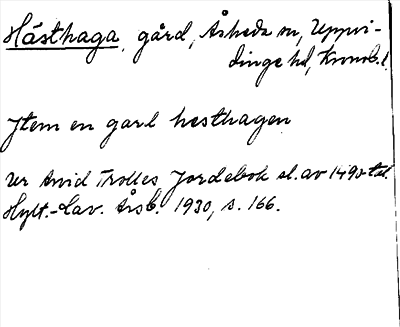 Hästhaga, gård, Åsheda sn, Uppvi-
dinge hd, Kronob. l.
Jtem en gard hesthagen
Ur Arvid Trolles Jordebok sl. av 1490-tal.
Hylt.-Cav. Årsb. 1930, s. 166.